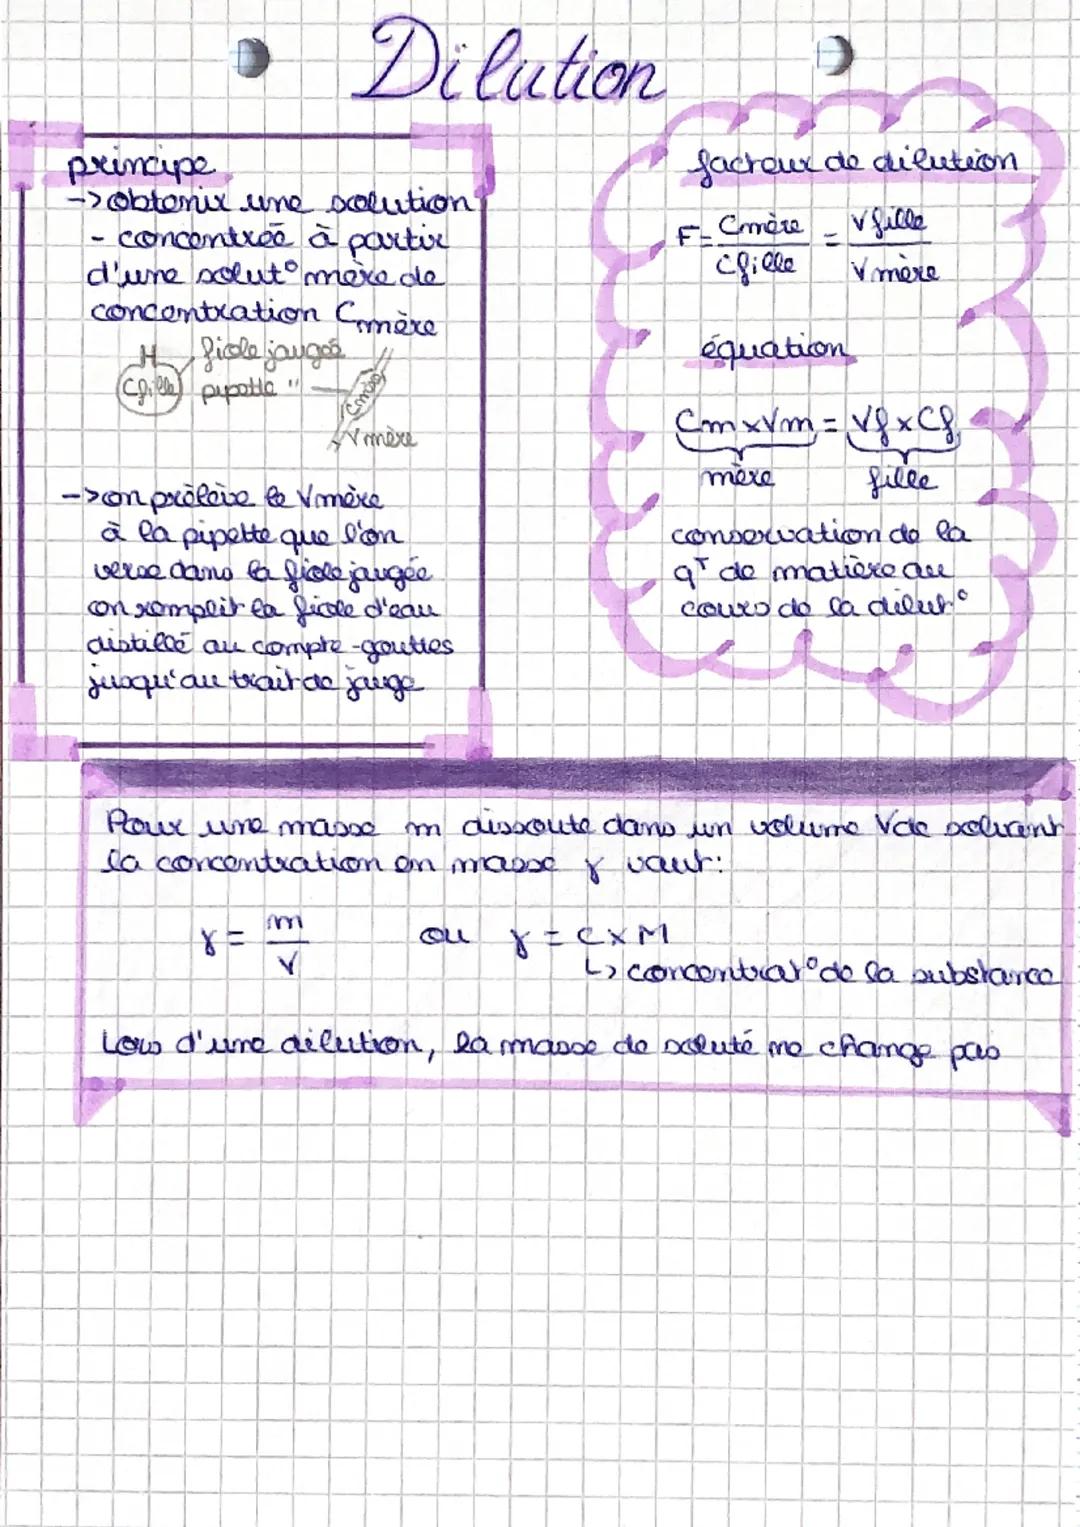 Dilution
principe
-> obtenir une solution
- concentrée à partir
d'une solut° mère de
concentration Cmère
fiole jaugée
Cfille
pipette "
Cmère
Vmère
-> on prélève le Vmère
à la pipette que l'on
verse dans la fiole jaugée
on remplit la fiole d'eau
distillé au compte-gouttes
jusqu'au trait de jauge
facteur de dilution
F = Cmère / Cfille = Vfille / Vmère
équation
Cm x Vm = Vf x Cf
mère fille
conservation de la
qT de matière au
cours de la dilut°
Pour une masse m dissoute dans un volume V de solvant
la concentration en masse γ vaut:
γ = m / V ou γ = C x M
↳ concentrat° de la substance
Lors d'une dilution, la masse de soluté ne change pas